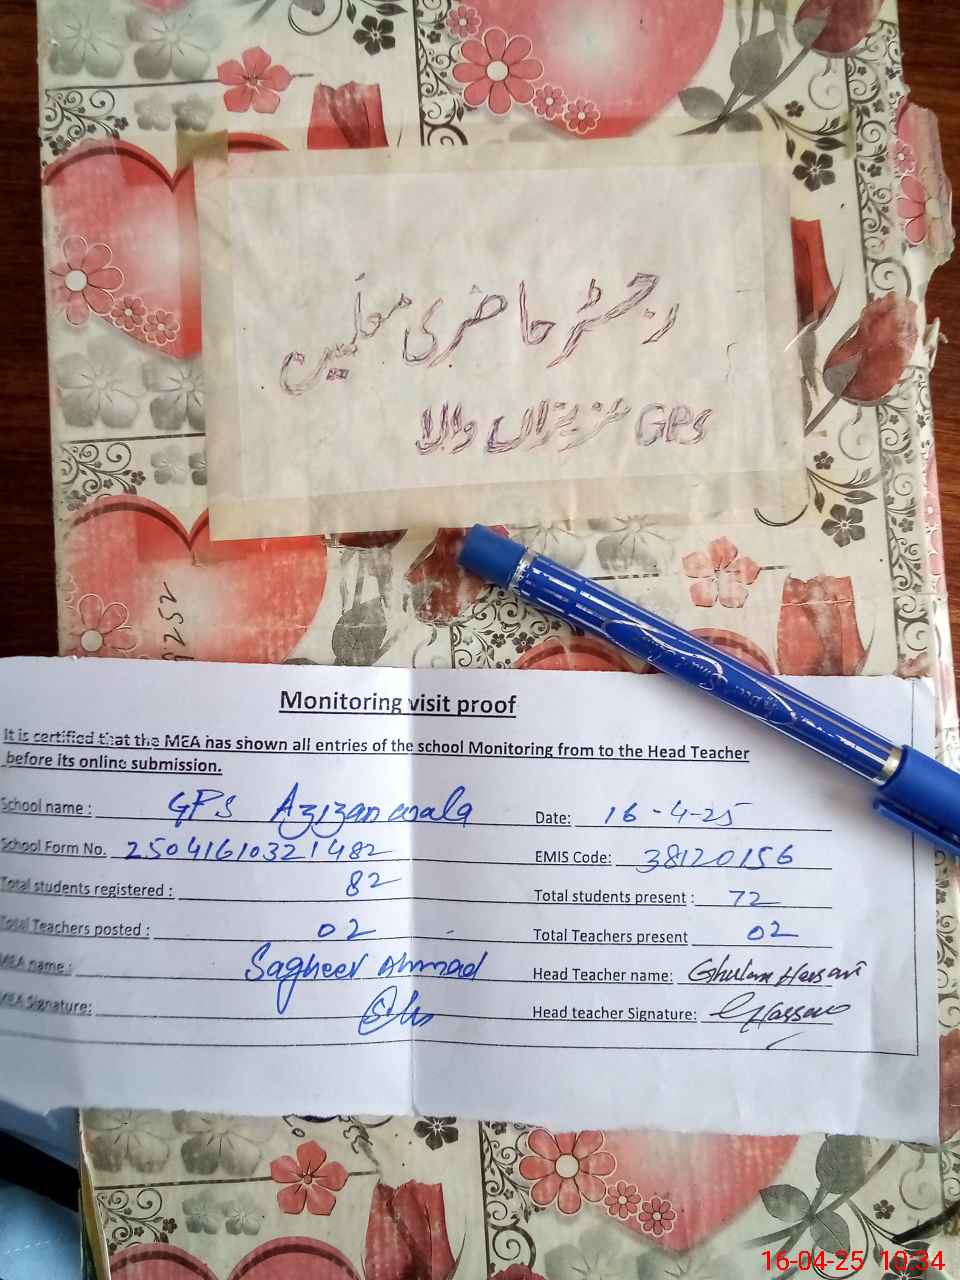 رجسٹر حاضری معلمین
GPS عزیزاں والا
9252
Monitoring visit proof
It is certified that the MEA has shown all entries of the school Monitoring from to the Head Teacher
before its online submission.
School name : GPS Azizanwala Date: 16-4-25
School Form No. 25041610321482 EMIS Code: 38120156
Total students registered : 82 Total students present : 72
Total Teachers posted : 02 Total Teachers present 02
MEA name : Sagheer Ahmad Head Teacher name: Ghulam Hassan
MEA Signature: Head teacher Signature: GHassan
16-04-25 10:34